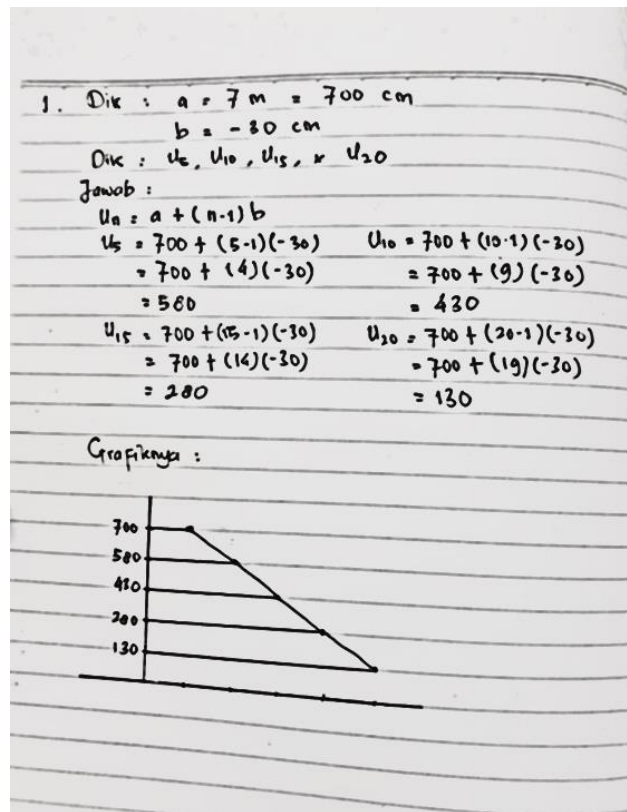 1. Dik : a = 7 m = 700 cm
b = -30 cm
Dik : U5, U10, U15, & U20
Jawab :
Un = a + (n-1) b
U5 = 700 + (5-1)(-30)
= 700 + (4)(-30)
= 580
U10 = 700 + (10-1)(-30)
= 700 + (9)(-30)
= 430
U15 = 700 + (15-1)(-30)
= 700 + (14)(-30)
= 280
U20 = 700 + (20-1)(-30)
= 700 + (19)(-30)
= 130
Grafiknya :
700
580
430
280
130